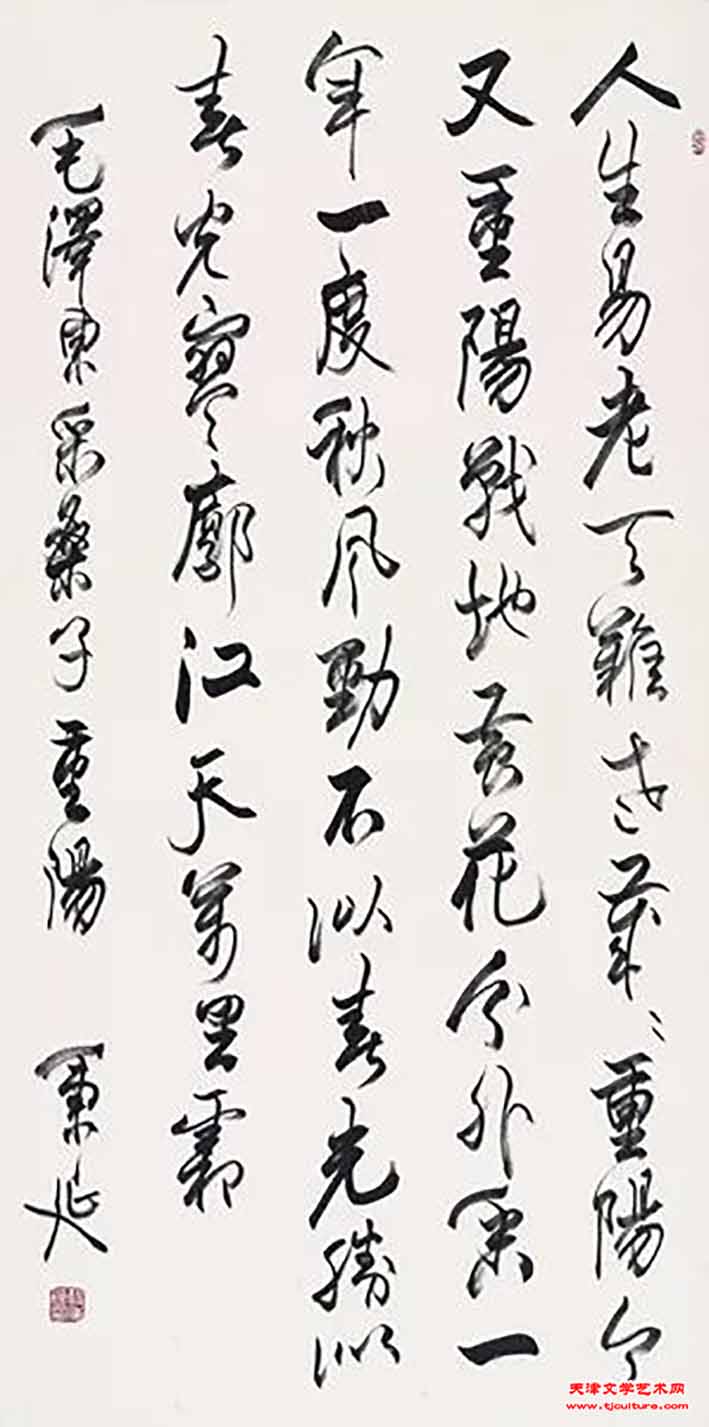 人生易老天難老歲〻重陽今
又重陽戰地黃花分外香一
年一度秋風勁不似春光勝似
春光寥廓江天萬里霜
毛澤東采桑子重陽
天津文学艺术网
www.tjculture.com